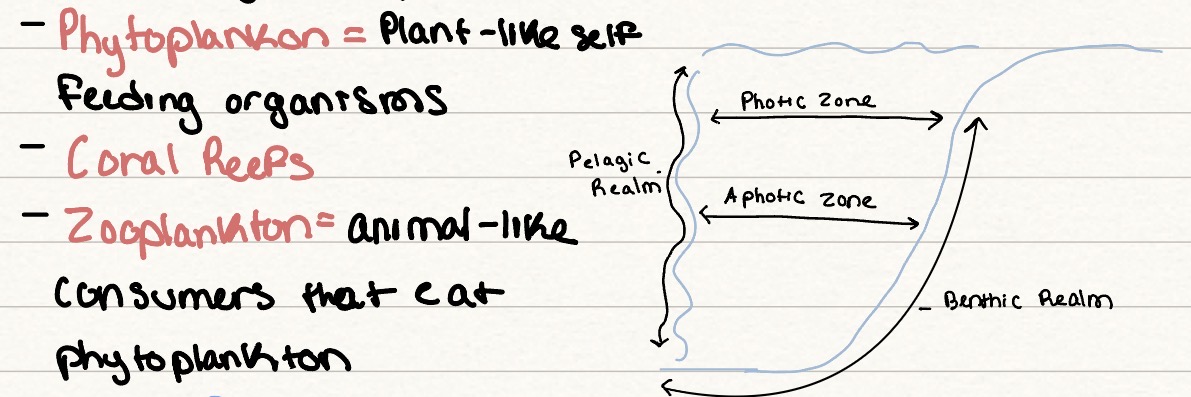 - Phytoplankon = Plant-like self
feeding organisms
- Coral Reefs
- Zooplankton= animal-like
consumers that eat
phytoplankton
Photic Zone
Pelagic
Realm
Aphotic Zone
- Benthic Realm